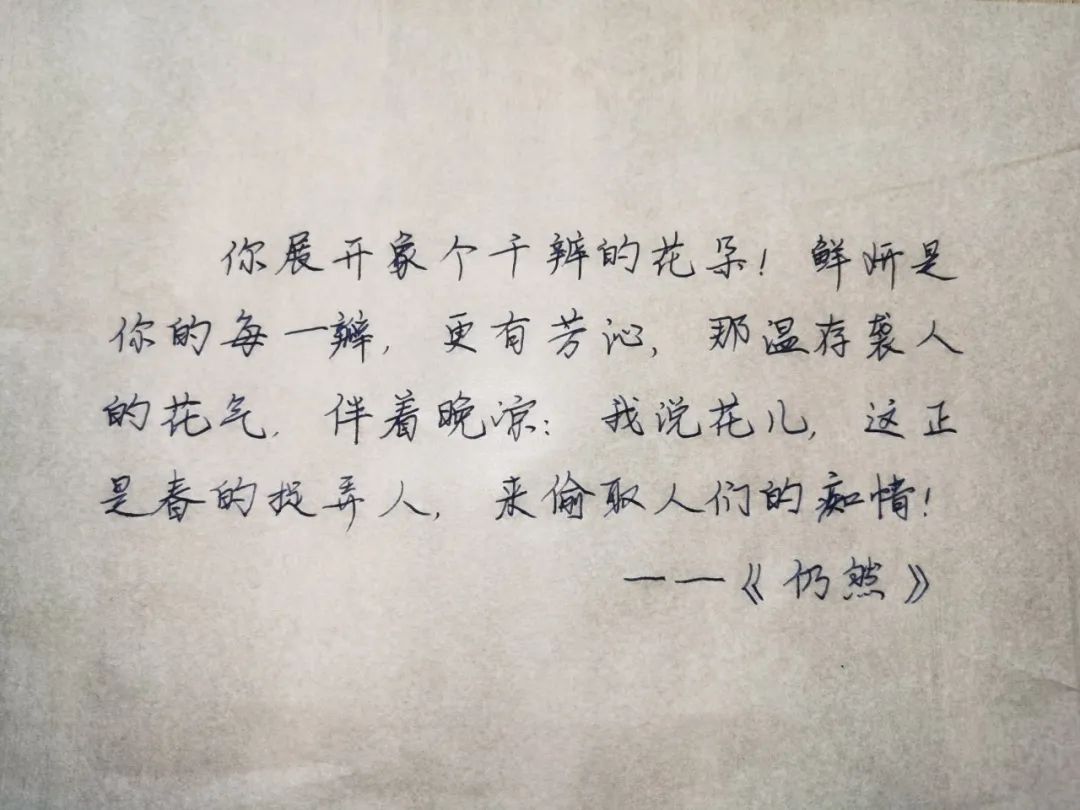 你展开象个千辨的花朵！鲜妍是
你的每一瓣，更有芳沁，那温存袭人
的花气，伴着晚凉：我说花儿，这正
是春的捉弄人，来偷取人们的痴情！
——《仍然》